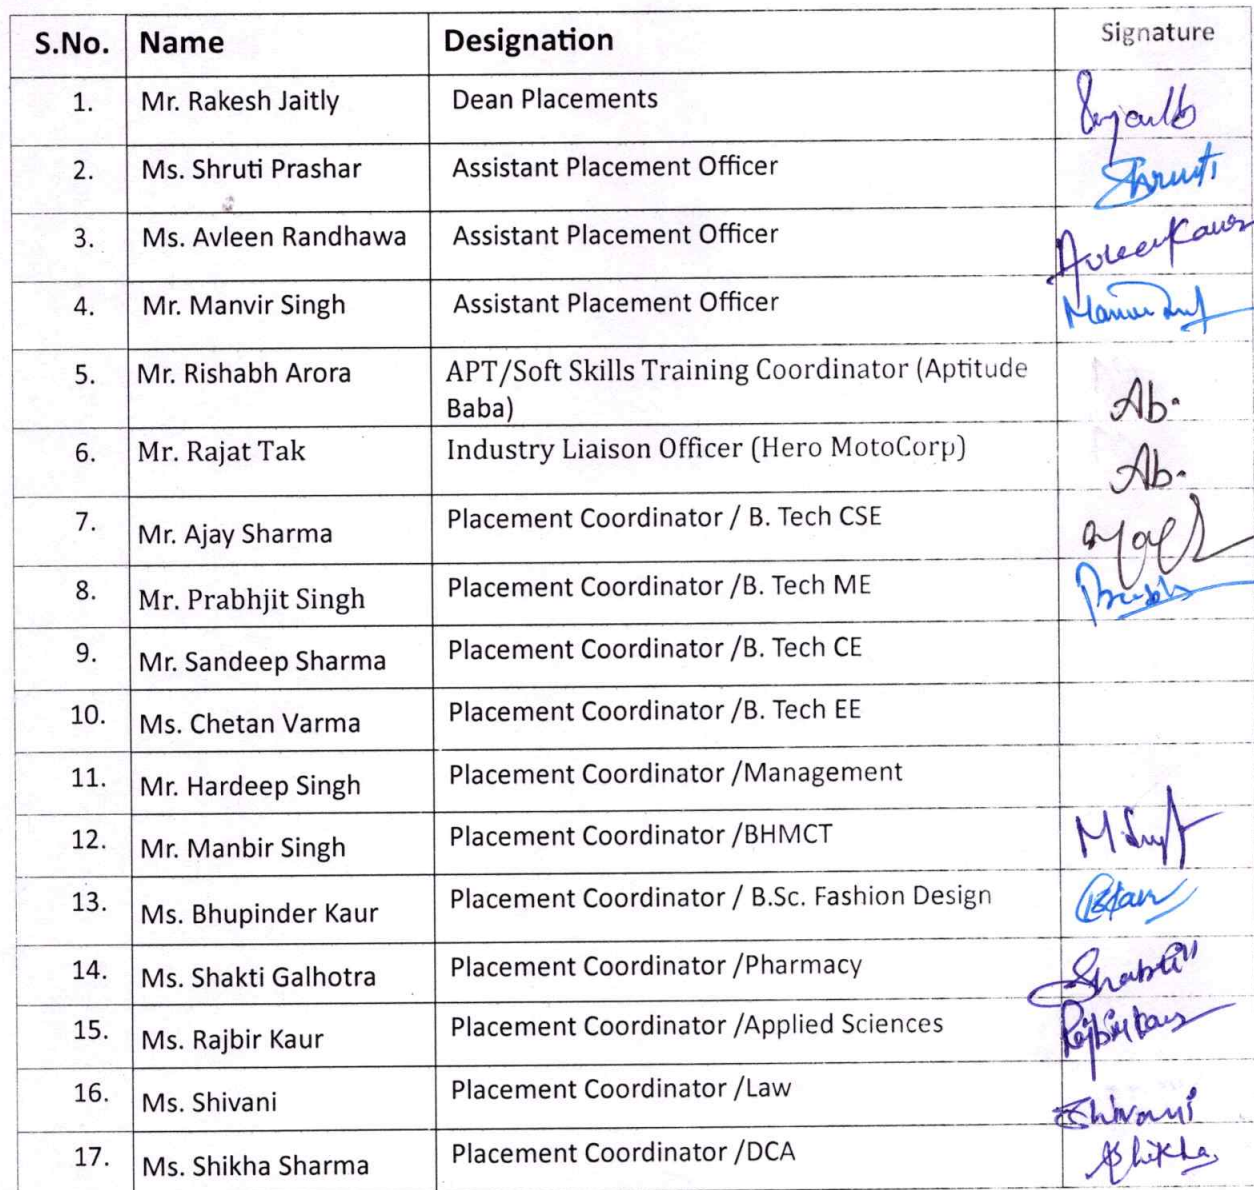 S.No. Name Designation Signature
1. Mr. Rakesh Jaitly Dean Placements
2. Ms. Shruti Prashar Assistant Placement Officer Shruti
3. Ms. Avleen Randhawa Assistant Placement Officer Avleen Kaur
4. Mr. Manvir Singh Assistant Placement Officer
5. Mr. Rishabh Arora APT/Soft Skills Training Coordinator (Aptitude
Baba) Ab.
6. Mr. Rajat Tak Industry Liaison Officer (Hero MotoCorp) Ab.
7. Mr. Ajay Sharma Placement Coordinator / B. Tech CSE
8. Mr. Prabhjit Singh Placement Coordinator /B. Tech ME
9. Mr. Sandeep Sharma Placement Coordinator /B. Tech CE
10. Ms. Chetan Varma Placement Coordinator /B. Tech EE
11. Mr. Hardeep Singh Placement Coordinator /Management
12. Mr. Manbir Singh Placement Coordinator /BHMCT
13. Ms. Bhupinder Kaur Placement Coordinator / B.Sc. Fashion Design
14. Ms. Shakti Galhotra Placement Coordinator /Pharmacy Shakti
15. Ms. Rajbir Kaur Placement Coordinator /Applied Sciences Rajbir Kaur
16. Ms. Shivani Placement Coordinator /Law Shivani
17. Ms. Shikha Sharma Placement Coordinator /DCA Shikha